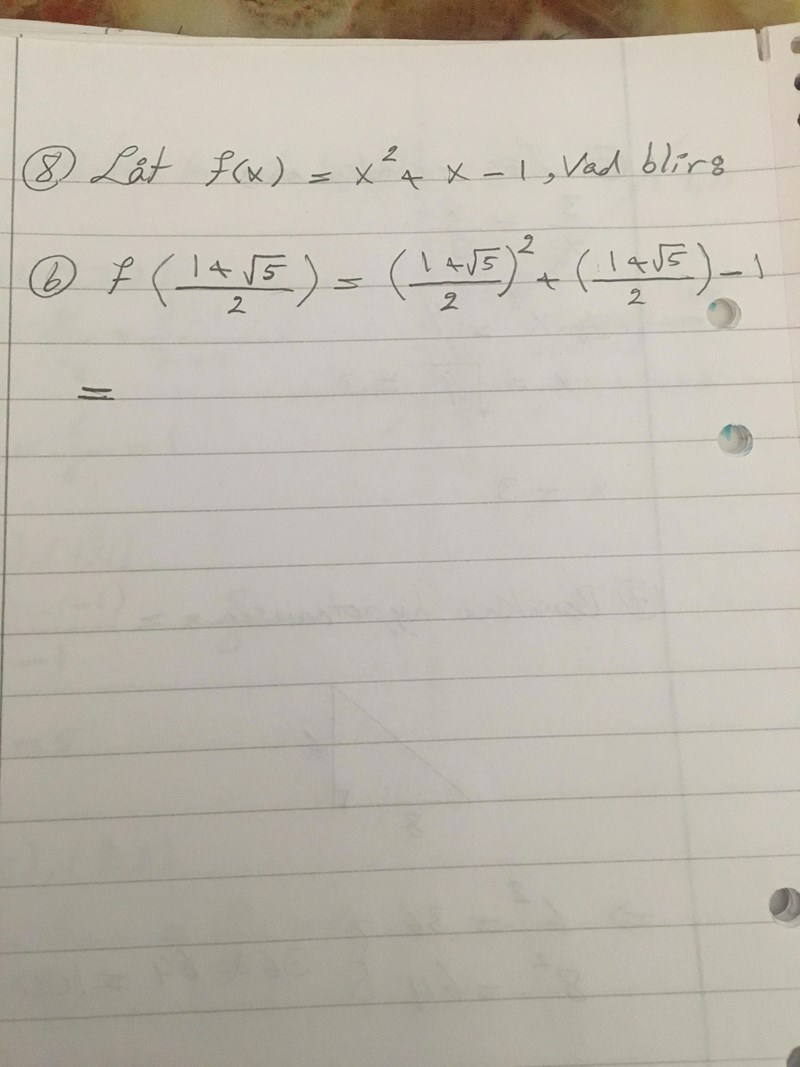 ⑧ Låt f(x) = x² + x - 1, Vad blirg
ⓑ f((1+√5)/2) = ((1+√5)/2)² + ((1+√5)/2) - 1
=